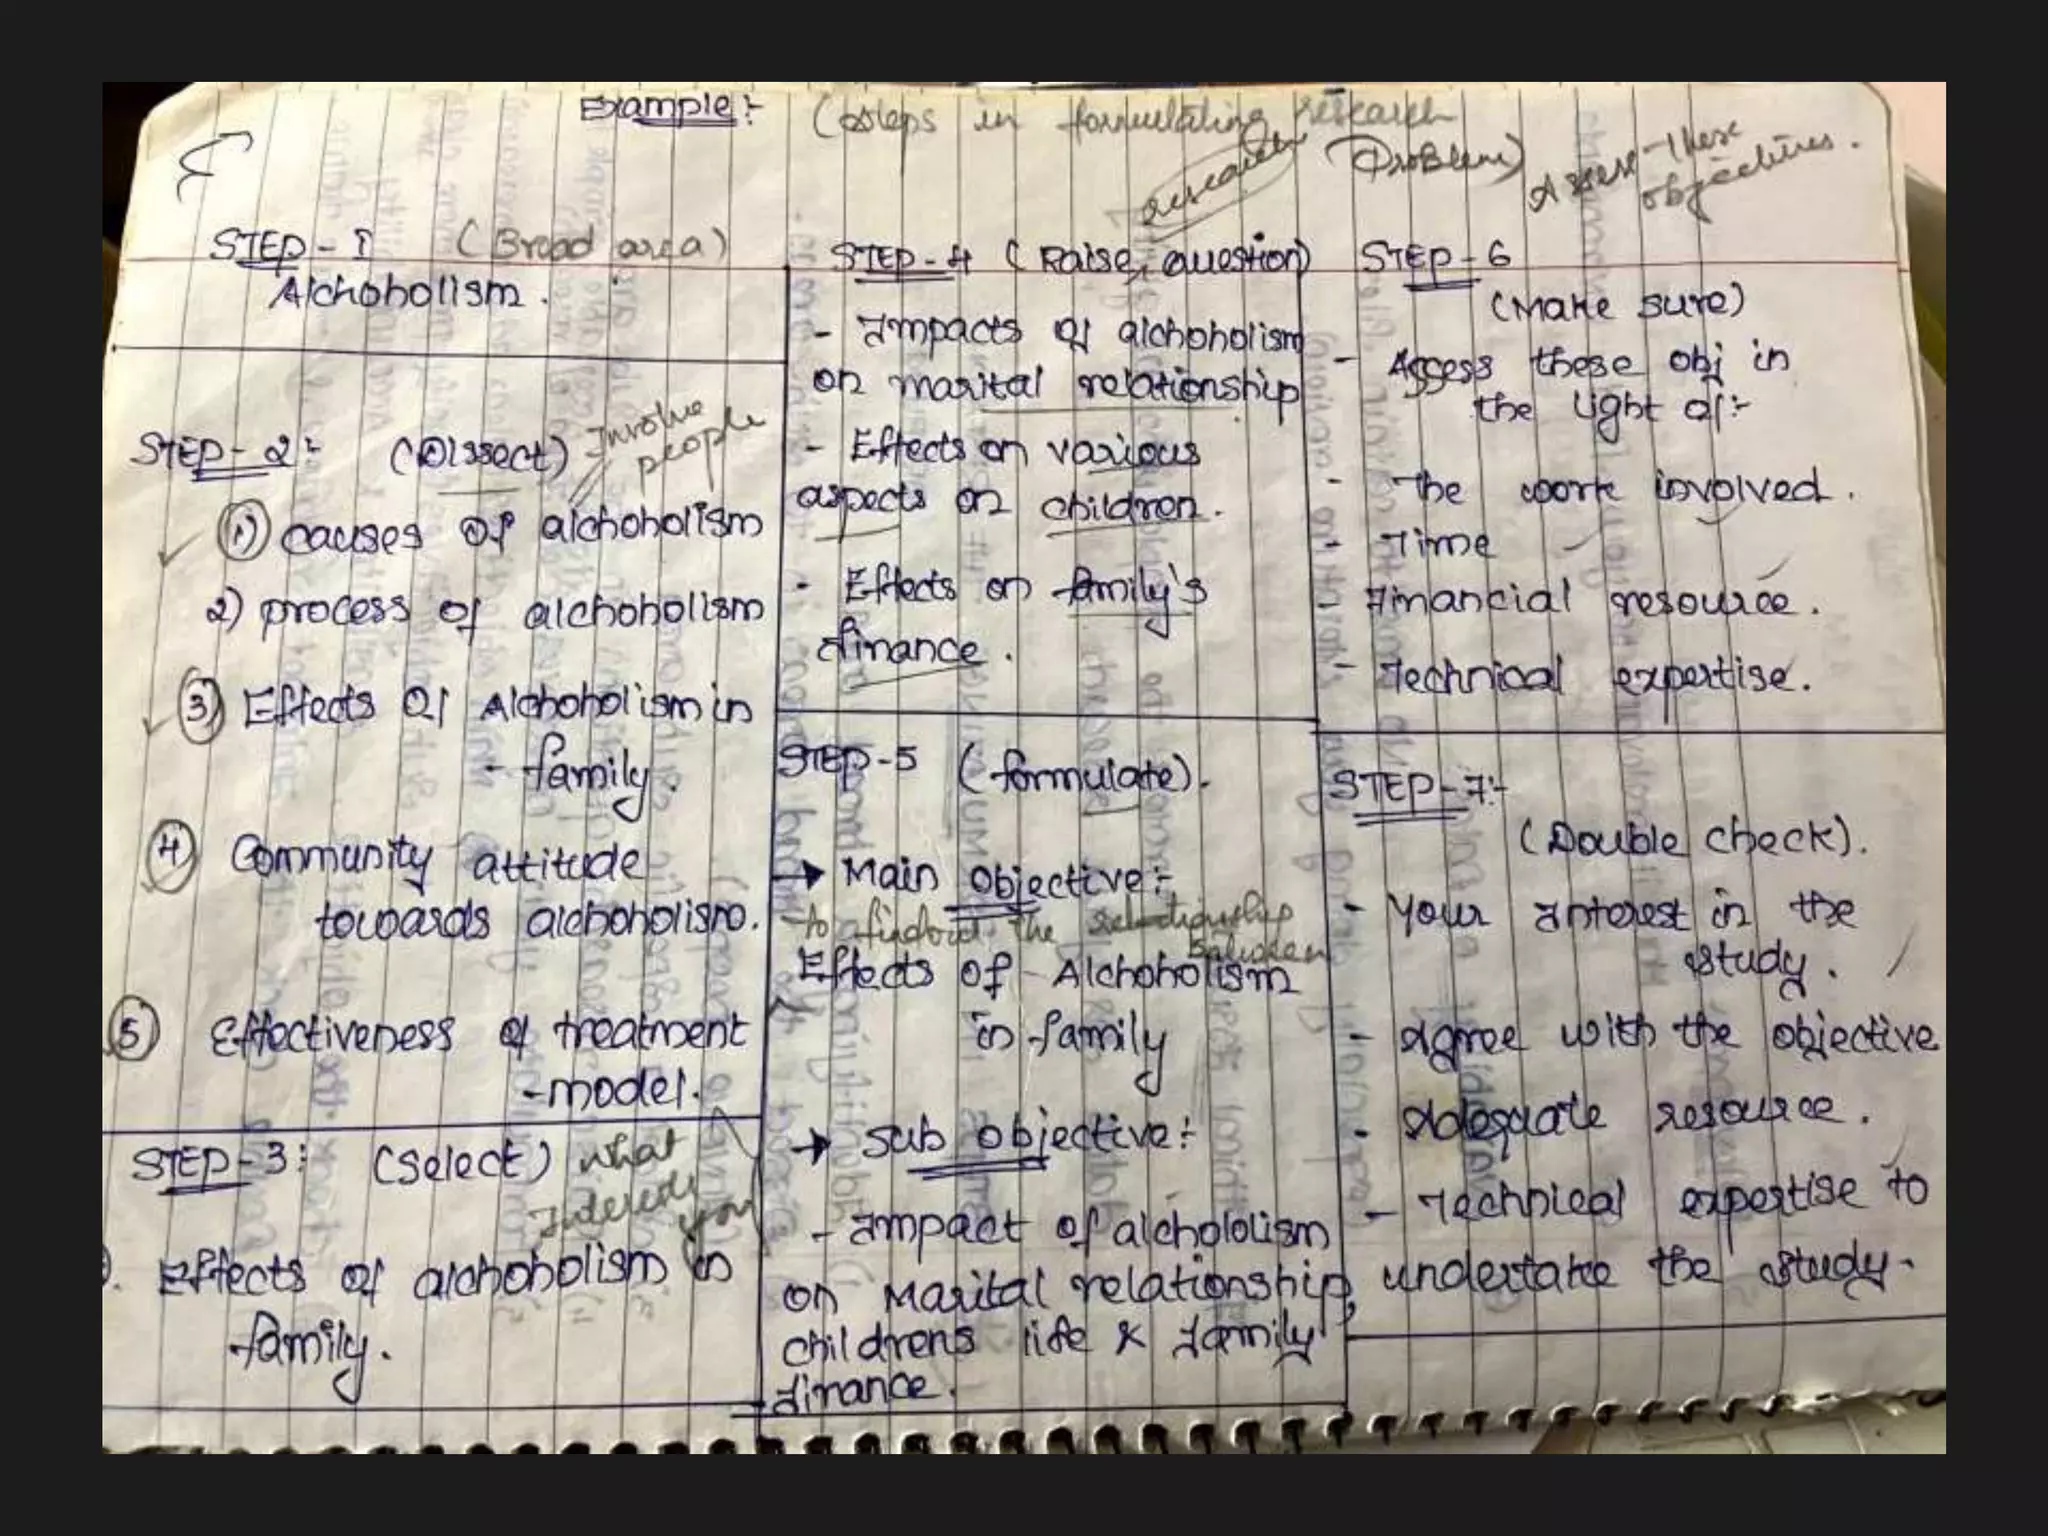 Example :-
(steps in formulating research
Problem)
STEP - 1 (Broad area)
Alchoholism.
STEP - 2 :- (Dissect) Involve
people
1) causes of alchoholism
2) process of alchoholism
3) Effects of Alchoholism in
- family.
4) Community attitude
towards alchoholism.
5) Effectiveness of treatment
- model.
STEP - 3 : (Select) what
Interests
you
Effects of alchoholism in
family.
research
STEP - 4 (Raise question)
- Impacts of alchoholism
on marital relationship
- Effects on various
aspects on children.
- Effects on family's
finance.
STEP - 5 (formulate).
→ Main objective :-
to findout the relationship
between
Effects of Alchoholism
in family
→ Sub objective :-
- Impact of alchololism
on Marital relationship,
childrens life & family
finance.
Assess these
objectives.
STEP - 6
(Make sure)
- Access these obj in
the light of :-
- The work involved.
- Time
- Financial resource.
- Technical expertise.
STEP - 7 :-
(Double check).
- Your Interest in the
study.
- Agree with the objective
- Adequate resource.
- Technical expertise to
undertake the study.